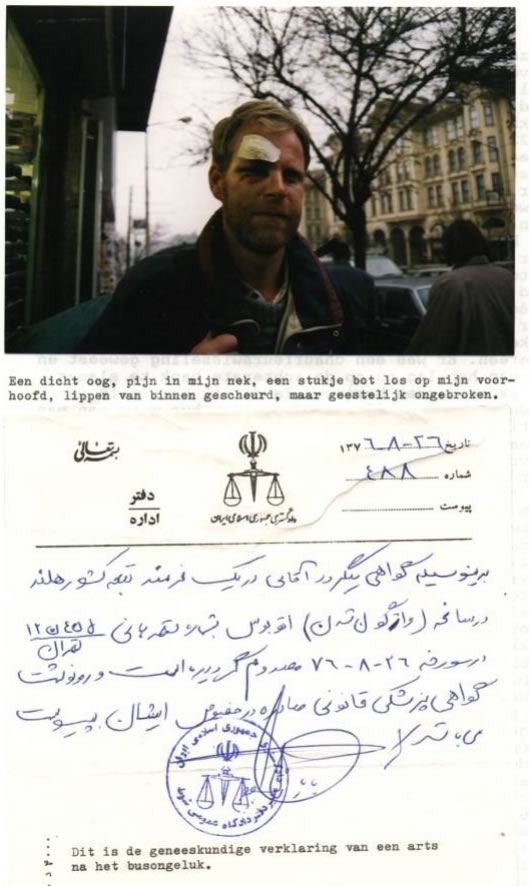 Een dicht oog, pijn in mijn nek, een stukje bot los op mijn voor-
hoofd, lippen van binnen gescheurd, maar geestelijk ongebroken.
بسمه تعالی
تاریخ ۱۳۷۶-۸-۲۶
شماره ۴۸۸
پیوست
دادگستری جمهوری اسلامی ایران
دفتر
اداره
بدینوسیله گواهی میگردد آقای دریک فرمند تبعه کشور هلند
در سانحه (واژگون شدن) اتوبوس بشماره تهران
در مورخه ۲۶-۸-۷۶ مصدوم گردیده است و رونوشت
گواهی پزشکی قانونی صادره در خصوص ایشان پیوست
می باشد
جمهوری اسلامی ایران
Dit is de geneeskundige verklaring van een arts
na het busongeluk.